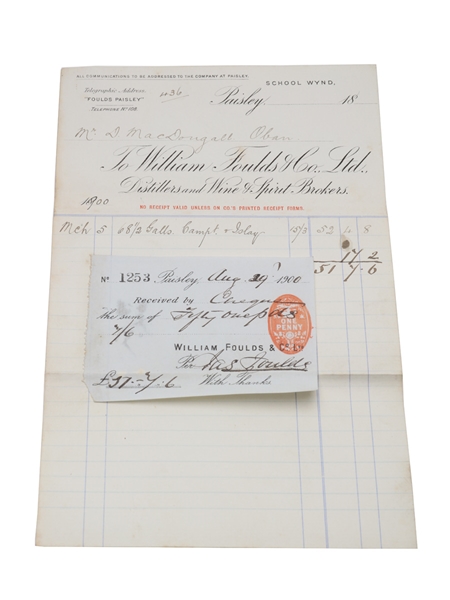 ALL COMMUNICATIONS TO BE ADDRESSED TO THE COMPANY AT PAISLEY.
SCHOOL WYND,
Telegraphic Address
"FOULDS PAISLEY"
TELEPHONE No
Paisley 18
Mr D. MacDougall Oban
To William Foulds & Co. Ltd.,
Distillers and Wine & Spirit Brokers.
1900
NO RECEIPT VALID UNLESS ON CO.'S PRINTED RECEIPT FORMS.
Mch 5 Galls. Campt. & Islay 15/3 52 4 8
17 2
51 7 6
No 1253 Paisley, Aug 29 1900
Received by Cheque
the sum of Fifty one pds
7/6
ONE PENNY
WILLIAM FOULDS & Co. Ld
Per Jas Foulds
£51-7-6 With Thanks